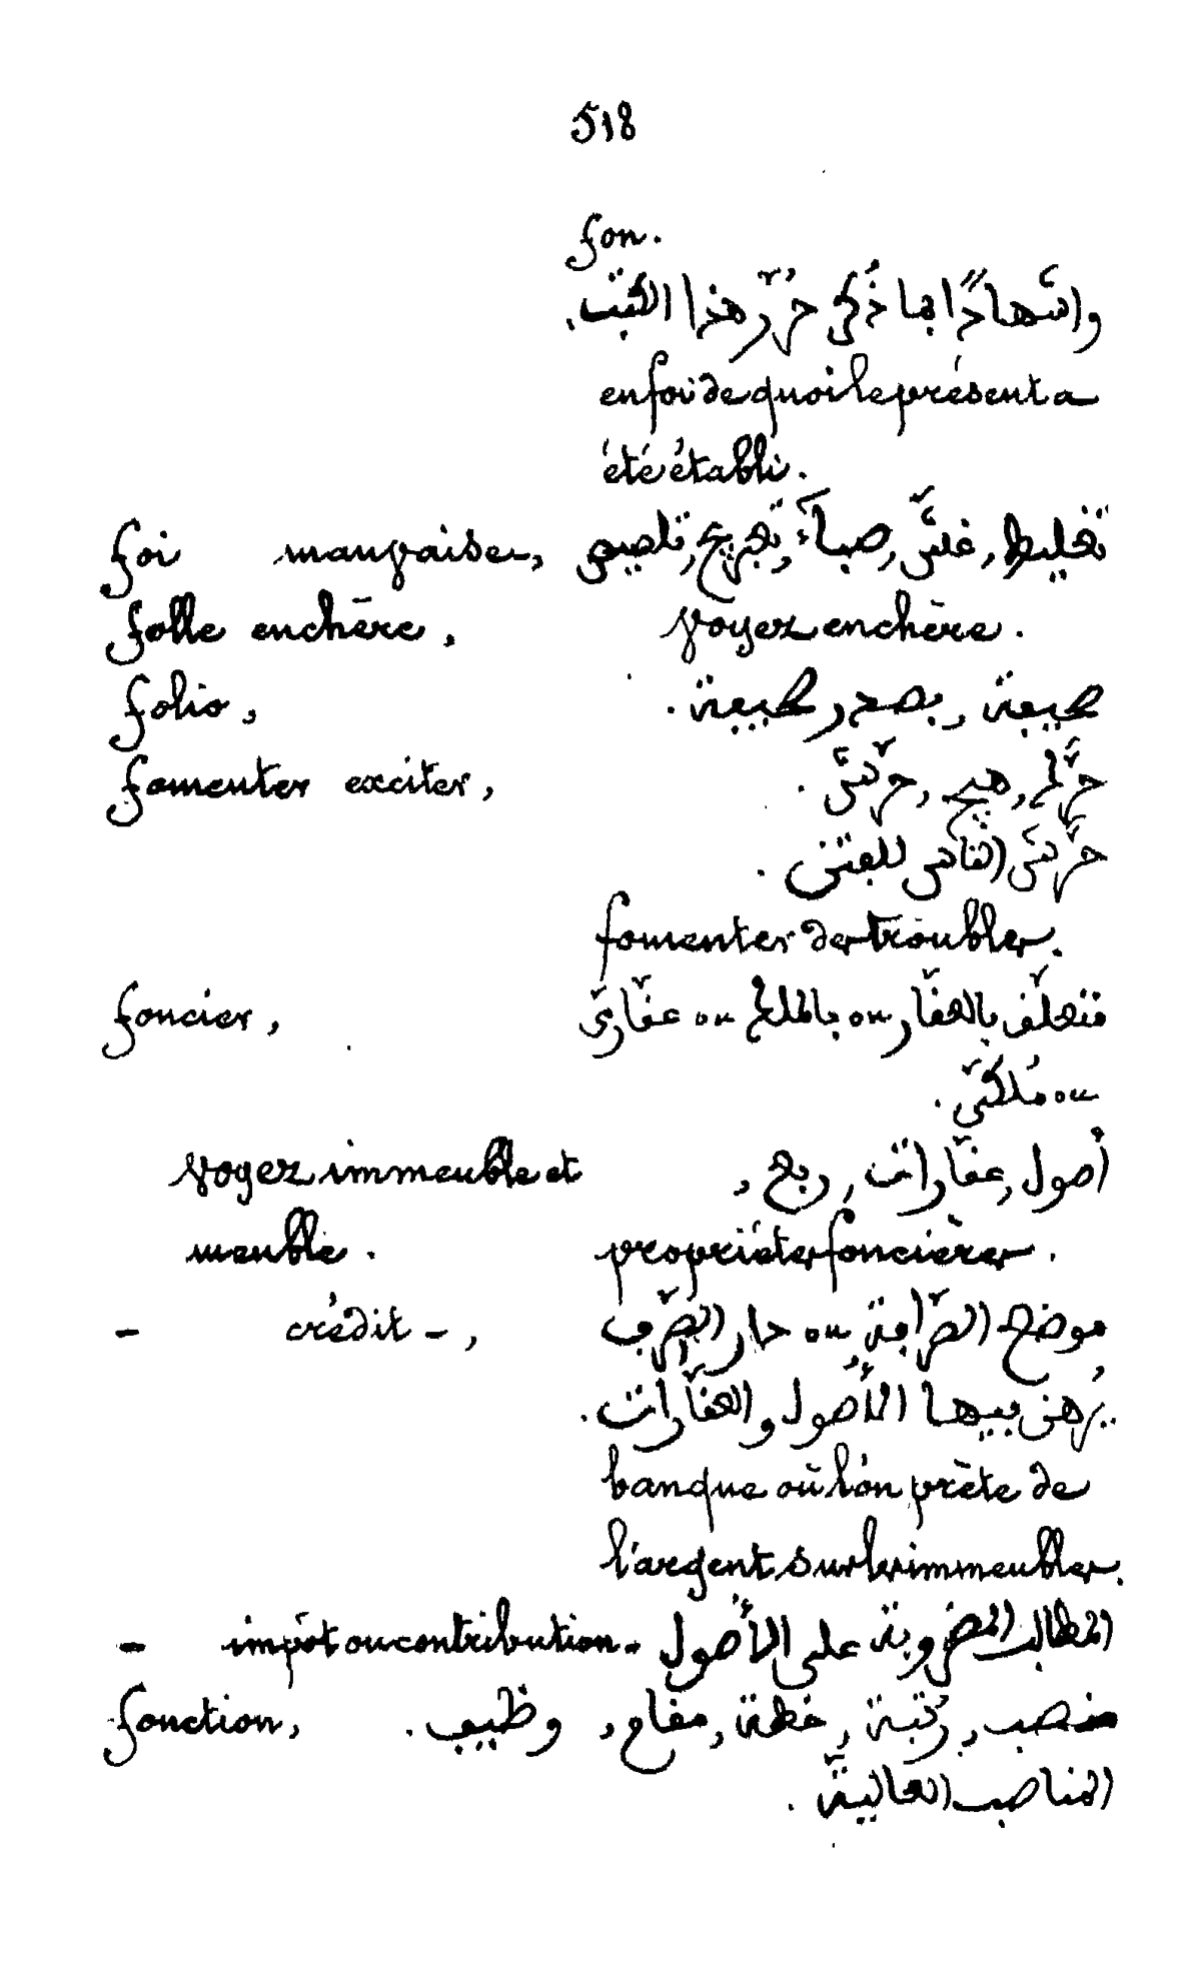 518
fon.
واشهادًا بما ذُكر حُرّر هذا الكتب.
en foi de quoi le présent a
été établi.
foi mauvaise, تخليط, غشّ,
folle enchère, voyez enchère.
folio, طبيعة.
fomenter exciter, حرَّك, هيج, حرّش.
حرَّش الناس للفتن.
fomenter des troubles.
foncier, متعلّق بالعقّار ou بالملك ou عقّاريّ
ou مُلكيّ.
أصول, عقّارات, ربع,
voyez immeuble et
meuble. propriétés foncières.
- crédit -, موضع الصّرافة ou دار الصّرف
يُرهن فيها الأُصول والعقّارات.
banque où l'on prête de
l'argent sur les immeubles.
- impôt ou contribution - المطالب المضروبة على الأُصول
fonction, منصب, رُتبة, خطة, مقام, وظيف.
المناصب العاليّة.